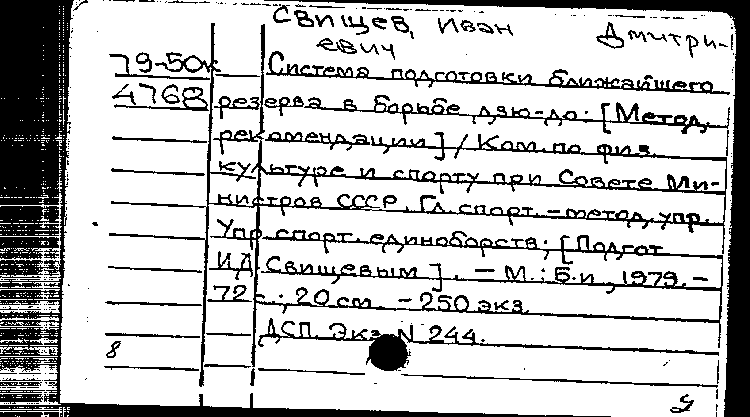 Свищев, Иван Дмитри-
евич
79-50к Система подготовки ближайшего
4768 резерва в борьбе дзю-до: [Метод.
рекомендации] / Ком. по физ.
культуре и спорту при Совете Ми-
нистров СССР. Гл. спорт.-метод. упр.
Упр. спорт. единоборств; [Подгот.
И.Д. Свищевым]. – М.: Б.и., 1979. –
72 с.; 20 см. – 250 экз.
ДСП. Экз. N 244.
8